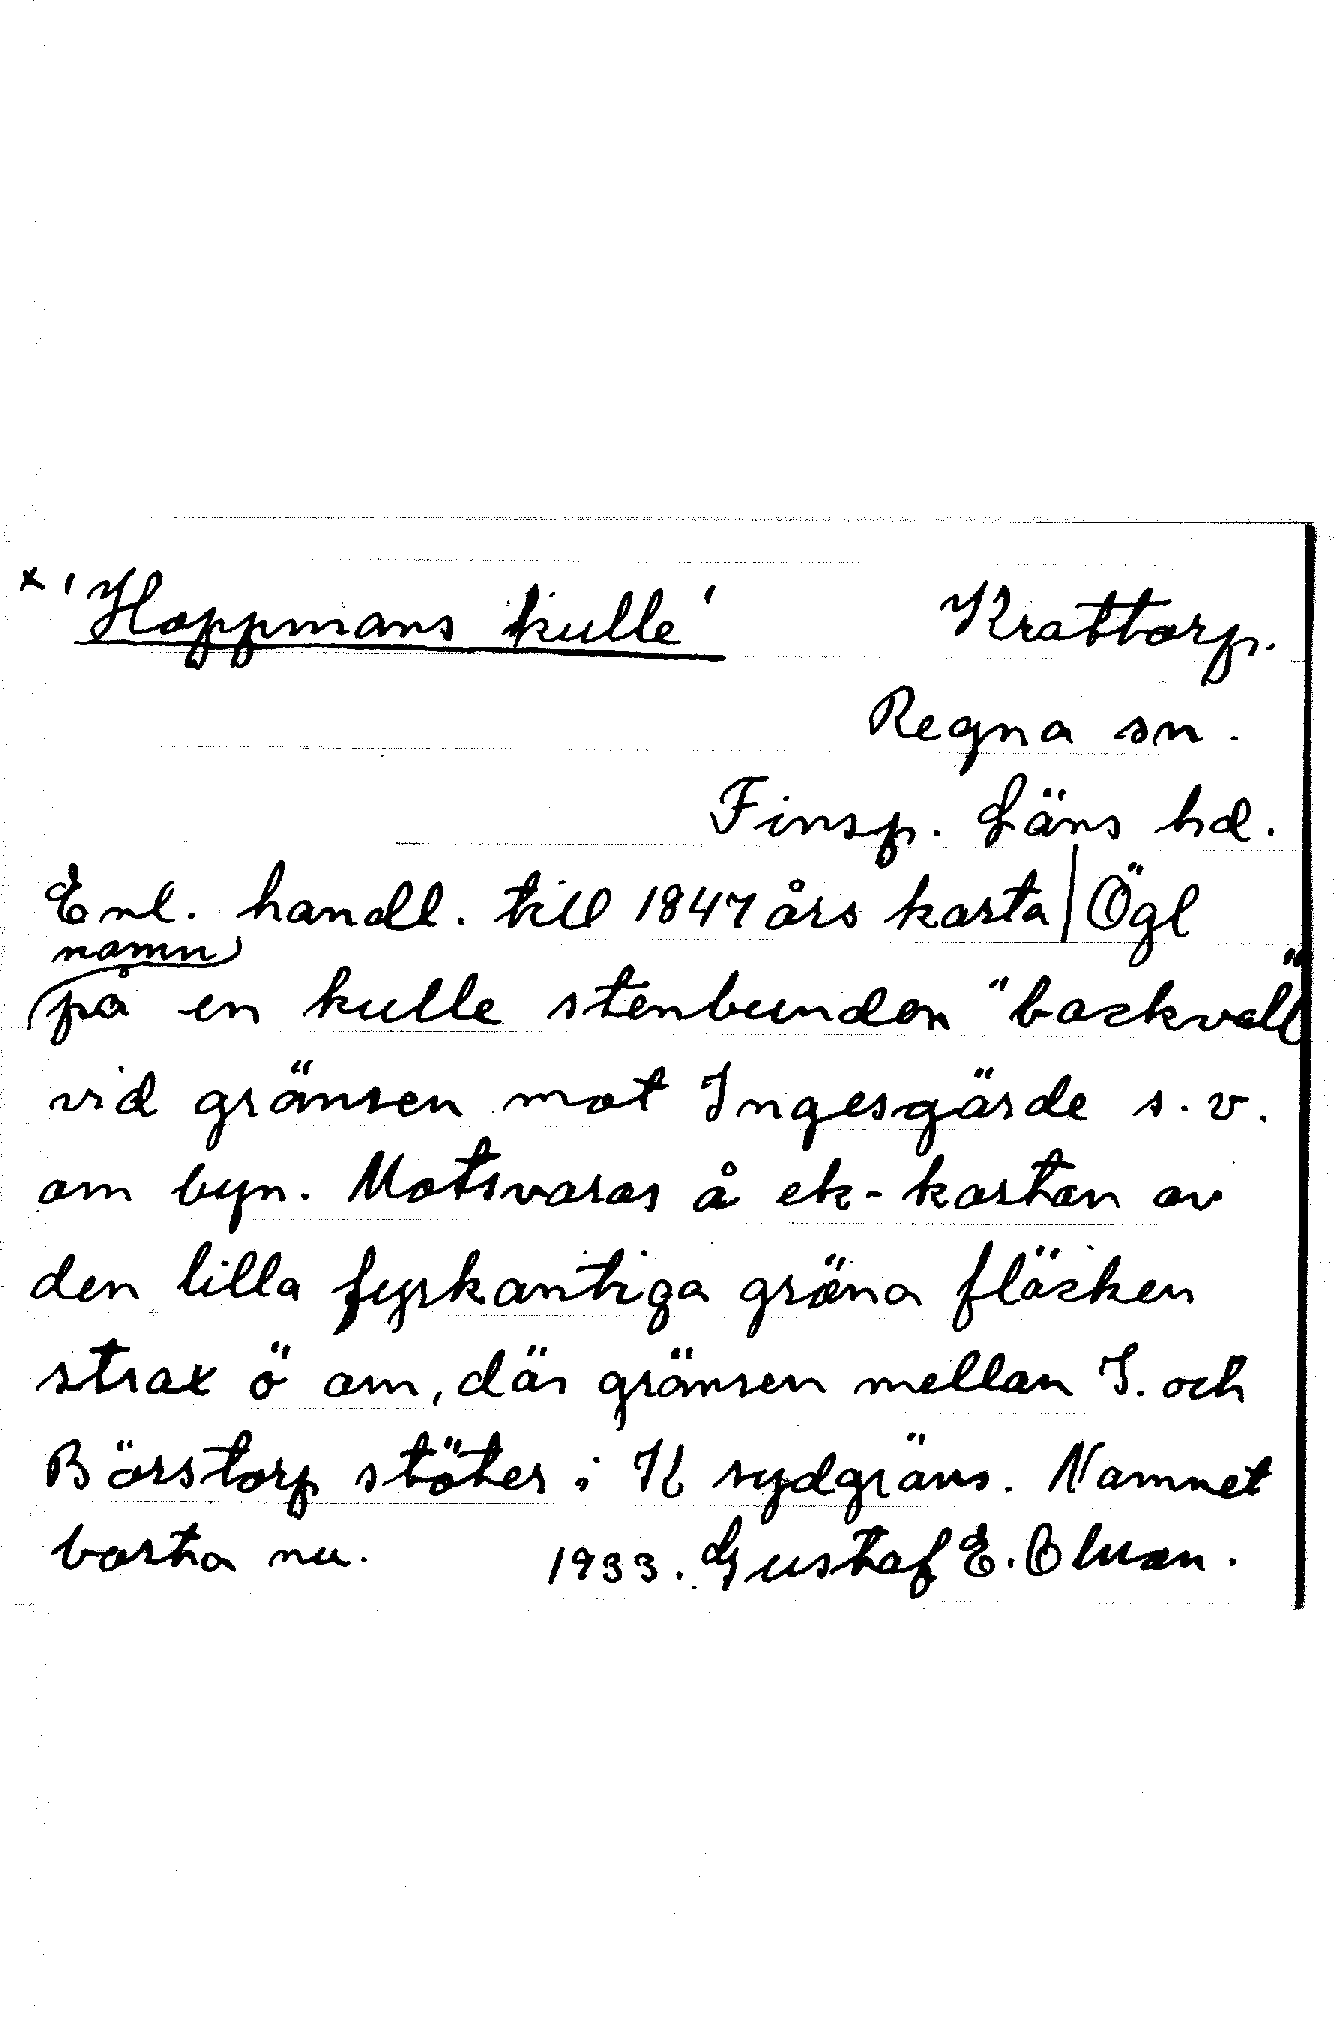 x 'Hoppmans kulle' Krattorp.
Regna sn.
Finsp. Läns hd.
Enl. handl. till 1847 års karta | Ögl
namn
på en kulle stenbunden "backvall"
vid gränsen mot Ingesgärde s.v.
om byn. Motsvaras å ek-kartan av
den lilla fyrkantiga gröna fläcken
strax ö om, där gränsen mellan I. och
Börstorp stöter i K sydgräns. Namnet
borta nu. 1933. Gustaf E.